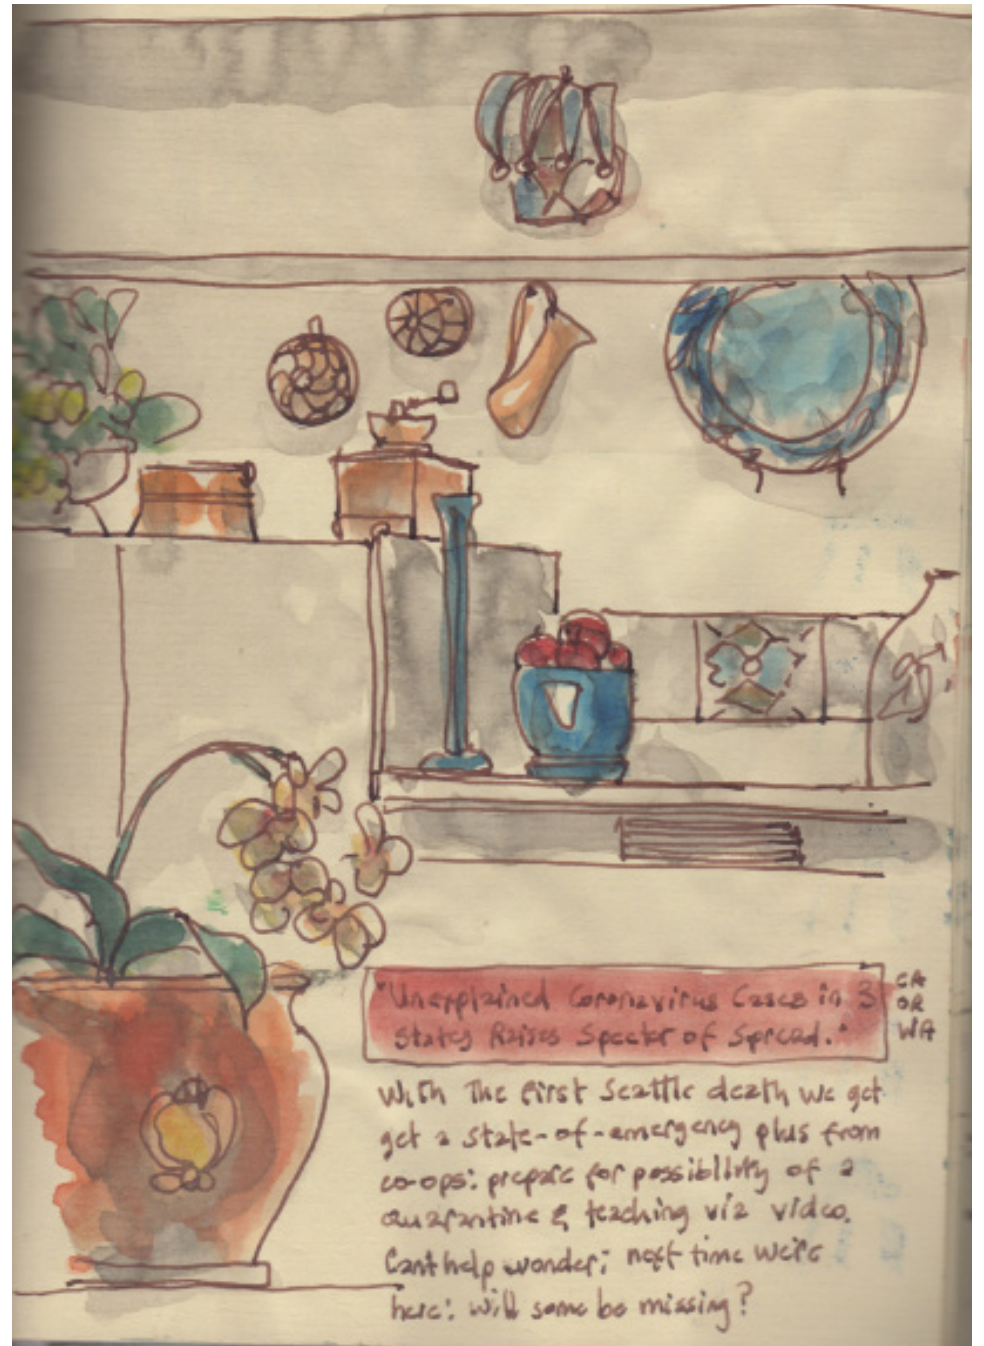 "Unexplained Coronavirus Cases in 3
States Raises Specter of Spread."
CA
OR
WA
With The first Seattle death we get
get a state-of-emergency plus from
co-ops: prepare for possibility of a
quarantine & teaching via video.
Cant help wonder; next time we're
here: will some be missing?